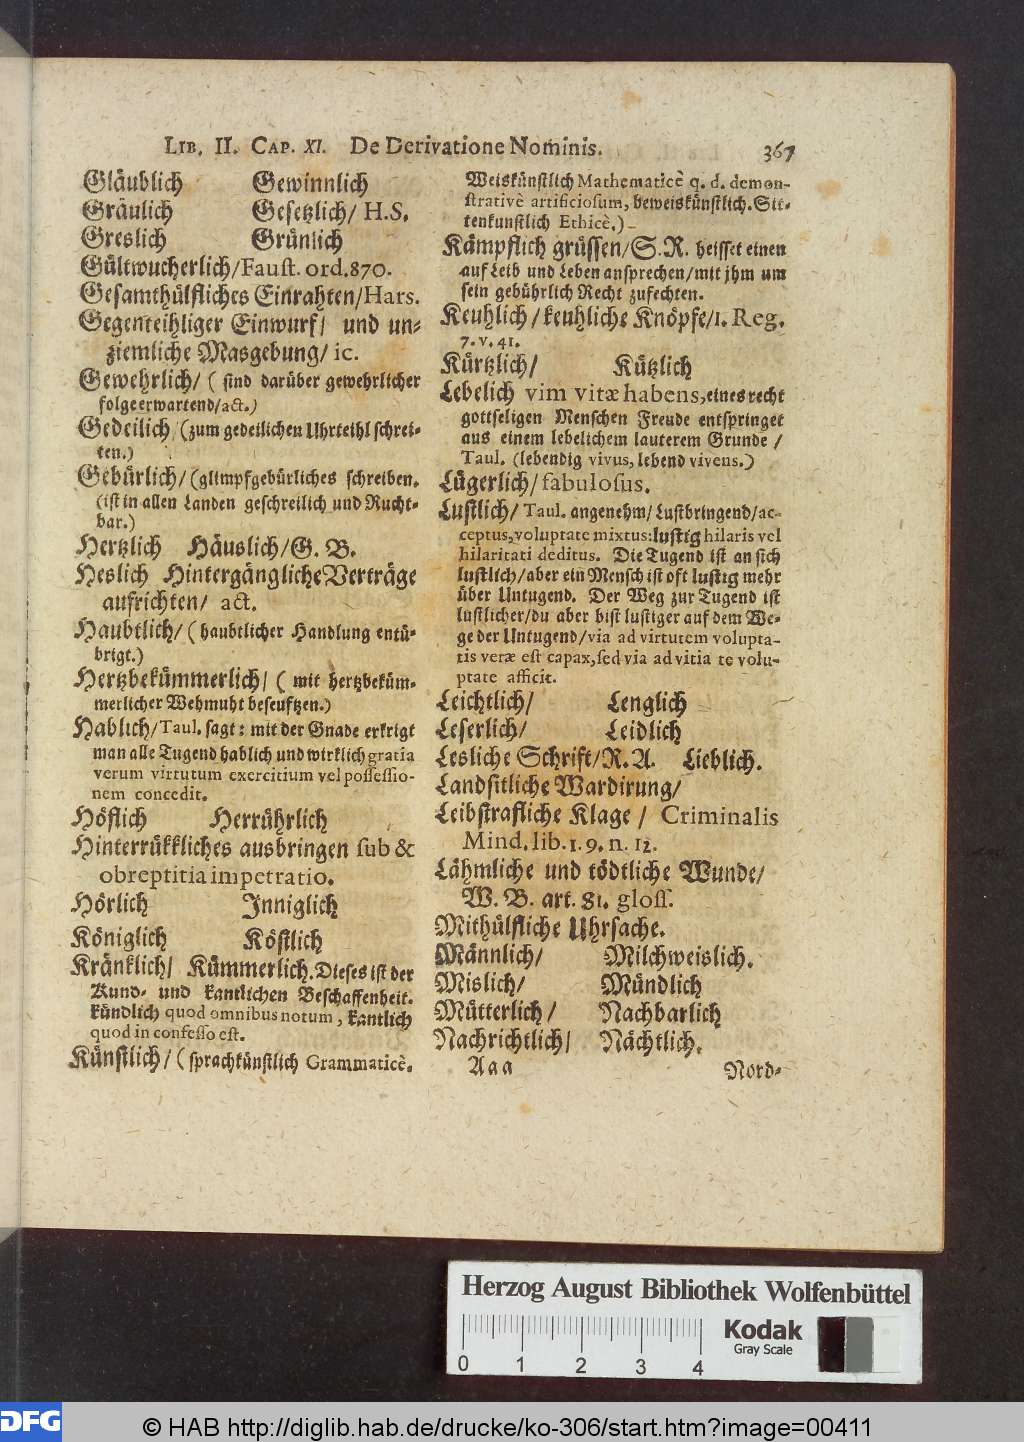 LIB. II. CAP. XI. De Derivatione Nominis. 367
Gläublich Gewinnlich
Gräulich Gesetzlich/ H.S.
Greslich Grünlich
Gültwucherlich/Faust. ord.870.
Gesamthülfliches Einrahten/Hars.
Gegenteihliger Einwurf/ und un-
ziemliche Masgebung/ ic.
Gewehrlich/ ( sind darüber gewehrlicher
folge erwartend/act.)
Gedeilich (zum gedeilichen Uhrteihl schrei-
ten.)
Gebürlich/ (glimpfgebürliches schreiben.
(ist in allen Landen geschreilich und Rucht-
bar.)
Hertzlich Häuslich/G. B.
Heslich Hintergängliche Verträge
aufrichten/ act.
Haubtlich/ ( haubtlicher Handlung entü-
brigt.)
Hertzbekümmerlich/ ( mit hertzbeküm-
merlicher Wehmuht beseuftzen.)
Hablich/Taul. sagt: mit der Gnade erkrigt
man alle Tugend hablich und wirklich gratia
verum virtutum exercitium vel possessio-
nem concedit.
Höflich Herrührlich
Hinterrükkliches ausbringen sub &
obreptitia impetratio.
Hörlich Inniglich
Königlich Köstlich
Kränklich/ Kümmerlich. Dieses ist der
Kund- und kantlichen Beschaffenheit.
kündlich quod omnibus notum, kantlich
quod in confesso est.
Künstlich/ ( sprachkünstlich Grammaticè.
Weiskünstlich Mathematicè q. d. demon-
strativè artificiosum, beweiskünstlich. Sit-
tenkunstlich Ethicè.)
Kämpflich grüssen/S.R. heisset einen
auf Leib und Leben ansprechen/mit jhm um
sein gebührlich Recht zufechten.
Keuhlich/keuhliche Knöpfe/1. Reg.
7. v. 41.
Kürtzlich/ Kützlich
Lebelich vim vitæ habens, eines recht
gottseligen Menschen Freude entspringet
aus einem lebelichem lauterem Grunde /
Taul. (lebendig vivus, lebend vivens.)
Lügerlich/fabulosus.
Lustlich/ Taul. angenehm/Lustbringend/ac-
ceptus, voluptate mixtus: lustig hilaris vel
hilaritati deditus. Die Tugend ist an sich
lustlich/aber ein Mensch ist oft lustig mehr
über Untugend. Der Weg zur Tugend ist
lustlicher/du aber bist lustiger auf dem We-
ge der Untugend/via ad virtutem volupta-
tis veræ est capax, sed via ad vitia te volu-
ptate afficit.
Leichtlich/ Lenglich
Leserlich/ Leidlich
Lesliche Schrift/R. A. Lieblich.
Landsitliche Wardirung/
Leibstrafliche Klage / Criminalis
Mind. lib. 1. 9. n. 12.
Lähmliche und tödtliche Wunde/
W. B. art. 81. gloss.
Mithülfliche Uhrsache.
Männlich/ Milchweislich.
Mislich/ Mündlich
Mütterlich/ Nachbarlich
Nachrichtlich/ Nächtlich.
Aaa Nord-
Herzog August Bibliothek Wolfenbüttel
0 1 2 3 4
Kodak
Gray Scale
DFG © HAB http://diglib.hab.de/drucke/ko-306/start.htm?image=00411